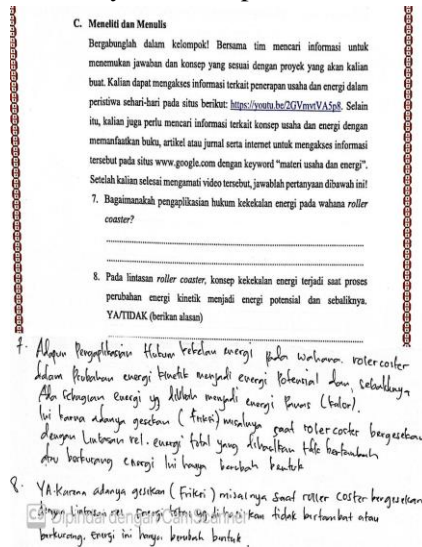 C. Meneliti dan Menulis
Bergabunglah dalam kelompok! Bersama tim mencari informasi untuk
menemukan jawaban dan konsep yang sesuai dengan proyek yang akan kalian
buat. Kalian dapat mengakses informasi terkait penerapan usaha dan energi dalam
peristiwa sehari-hari pada situs berikut: https://youtu.be/2GVmvtVA5p8. Selain
itu, kalian juga perlu mencari informasi terkait konsep usaha dan energi dengan
memanfaatkan buku, artikel atau jurnal serta internet untuk mengakses informasi
tersebut pada situs www.google.com dengan keyword "materi usaha dan energi".
Setelah kalian selesai mengamati video tersebut, jawablah pertanyaan dibawah ini!
7. Bagaimanakah pengaplikasian hukum kekekalan energi pada wahana roller
coaster?
8. Pada lintasan roller coaster, konsep kekekalan energi terjadi saat proses
perubahan energi kinetik menjadi energi potensial dan sebaliknya.
YA/TIDAK (berikan alasan)
7. Adapun Pengaplikasian Hukum kekelan energi pada wahana rolercoster
dalam Probahan energi kinetik menjadi energi Potensial dan sebaliknya,
Ada sebagian energi yg diubah menjadi energi Panas (kalor).
Ini karna adanya gesekan (friksi) misalnya saat rolercoster bergesekan
dengan lintasan rel. energi total yang dihasilkan tdk bertambah
atau berkurang energi ini hanya berubah bentuk
8. YA. Karena adanya gesekan (Friksi) misalnya saat roller coster bergesekan
dengan lintasan rel. Energi total yg dihasilkan tidak bertambat atau
berkurang, energi ini hanya berubah bentuk
CS Dipindai dengan CamScanner